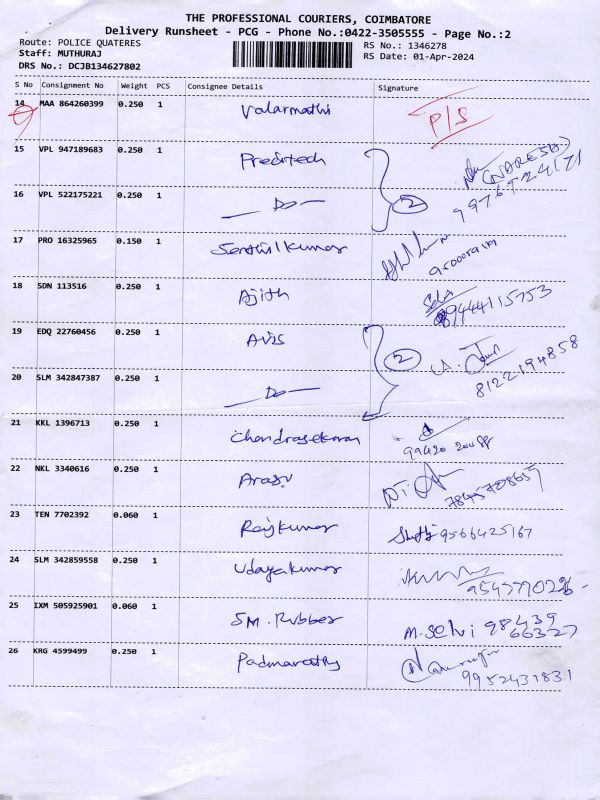 THE PROFESSIONAL COURIERS, COIMBATORE
Delivery Runsheet - PCG - Phone No.:0422-3505555 - Page No.:2
Route: POLICE QUATERES RS No.: 1346278
Staff: MUTHURAJ RS Date: 01-Apr-2024
DRS No.: DCJB134627802
S No Consignment No Weight PCS Consignee Details Signature
14 MAA 864260399 0.250 1 Valarmathi P/S
15 VPL 947189683 0.250 1 Preditech (NARESH)
16 VPL 522175221 0.250 1 — Do — 2 9976924171
17 PRO 16325965 0.150 1 Senthilkumar
18 SDN 113516 0.250 1 Ajith 9444115753
19 EDQ 22760456 0.250 1 AVIS 2
20 SLM 342847387 0.250 1 — Do — 8122194858
21 KKL 1396713 0.250 1 Chandrasekaran
99420 20088
22 NKL 3340616 0.250 1 Arasu 7845708659
23 TEN 7702392 0.060 1 Rajkumar 9566425167
24 SLM 342859558 0.250 1 Udayakumar
25 IXM 505925901 0.060 1 SM. Rubber M. Selvi 98439
66327
26 KRG 4599499 0.250 1 Padmavathy
9952431831